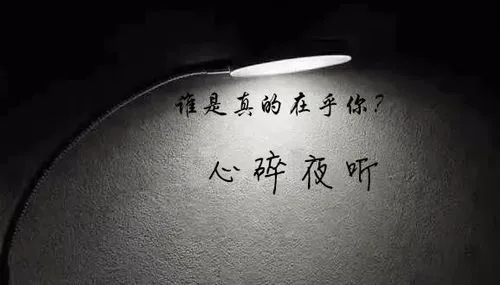 谁是真的在乎你?
心碎夜听